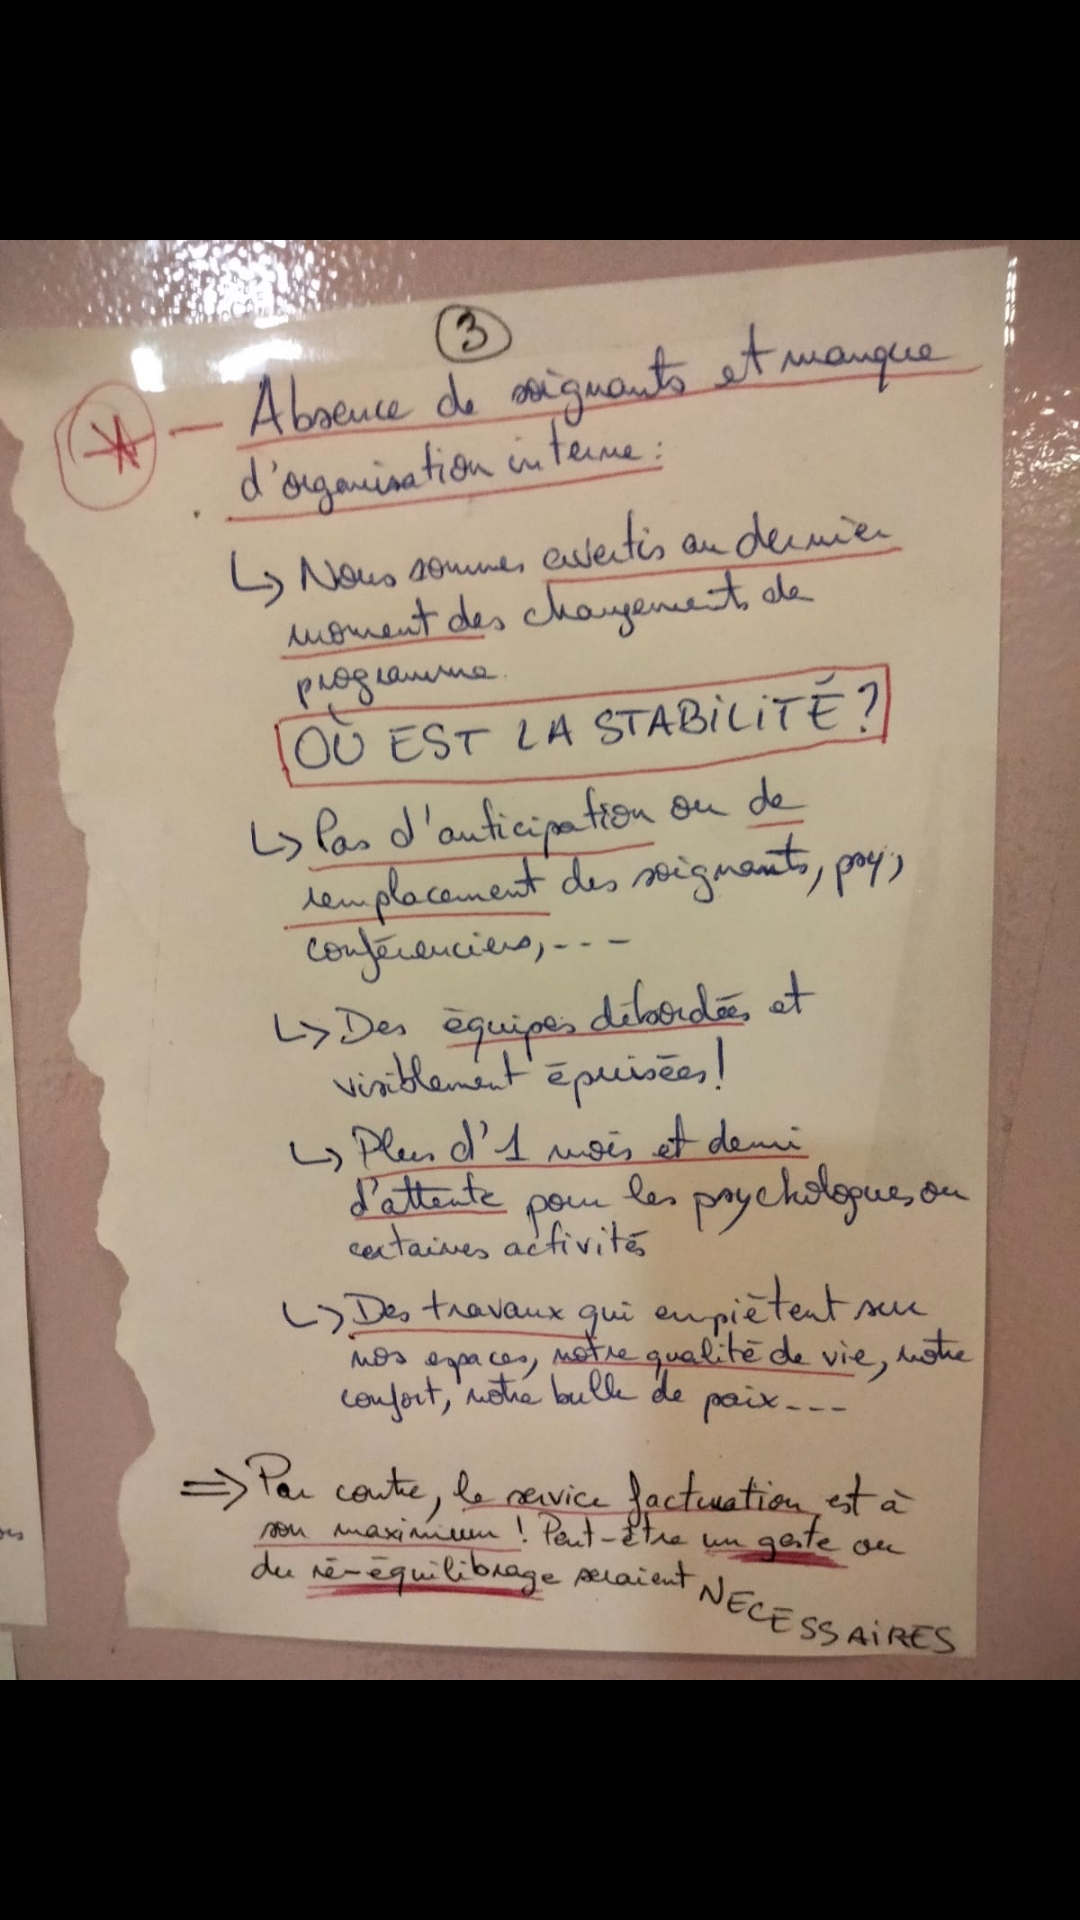 3
- Absence de soignants et manque
d'organisation interne :
↳ Nous sommes avertis au dernier
moment des changements de
programme.
OÙ EST LA STABILITÉ ?
↳ Pas d'anticipation ou de
remplacement des soignants, psy,
conférenciers, ---
↳ Des équipes débordées et
visiblement épuisées !
↳ Plus d'1 mois et demi
d'attente pour les psychologues ou
certaines activités
↳ Des travaux qui empiètent sur
nos espaces, notre qualité de vie, notre
confort, notre bulle de paix ---
⇒ Par contre, le service facturation est à
son maximum ! Peut-être un geste ou
du ré-équilibrage seraient NECESSAIRES